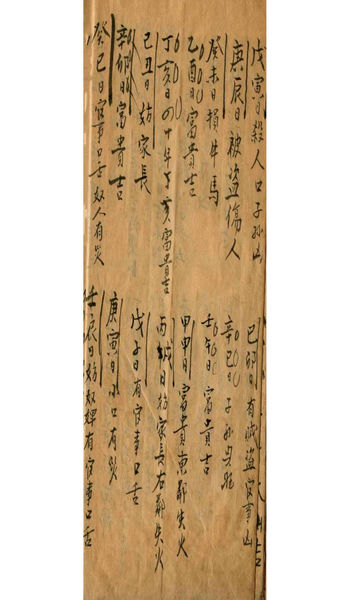 戊寅日殺人口子孫凶
己卯日有賊盗官事凶
庚辰日被盗傷人
辛巳日子孫興旺
癸未日損牛馬
壬午日富貴吉
乙酉日富貴吉
甲申日富貴東鄰失火
丁亥日の十年丁亥富貴吉
丙戌日妨家長右鄰失火
己丑日妨家長
戊子日有官事口舌
辛卯日富貴吉
庚寅日小口有災
癸巳日官事口舌奴人有災
壬辰日妨奴婢有官事口舌